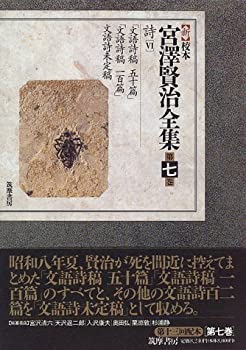 【新】校本
宮澤賢治全集
第七巻
詩[Ⅵ]
「文語詩稿 五十篇」
「文語詩稿 一百篇」
文語詩未定稿
筑摩書房
昭和八年夏、賢治が死を間近に控えて
まとめた「文語詩稿 五十篇」「文語詩稿 一
百篇」のすべてと、その他の文語詩百二
篇を「文語詩未定稿」として収める。
【編纂委員】宮沢清六 天沢退二郎 入沢康夫 奥田弘 栗原敦 杉浦静
第十三回配本
第七巻
筑摩書房